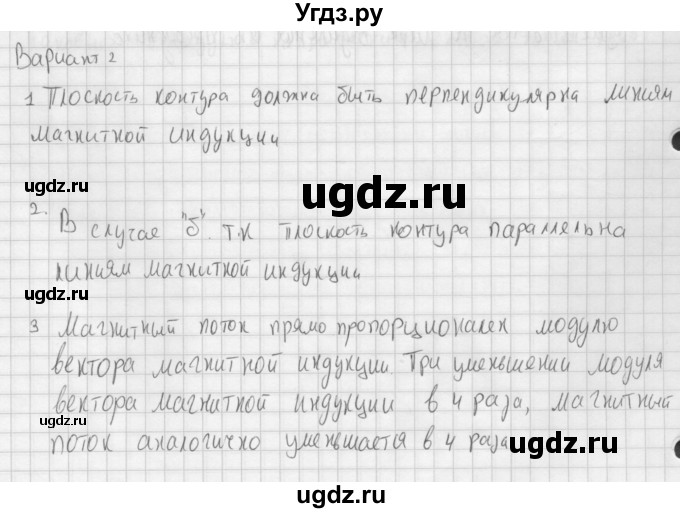 Угдз.ру
Вариант 2
1 Плоскость контура должна быть перпендикулярна линиям
магнитной индукции
ugdz.ru
ugdz.ru
2. В случае "б". т.к плоскость контура параллельна
линиям магнитной индукции
ugdz.ru
3 Магнитный поток прямо пропорционален модулю
вектора магнитной индукции. При уменьшении модуля
вектора магнитной индукции в 4 раза, магнитный
ugdz.ru
поток аналогично уменьшается в 4 раза
ugdz.ru
ugdz.ru